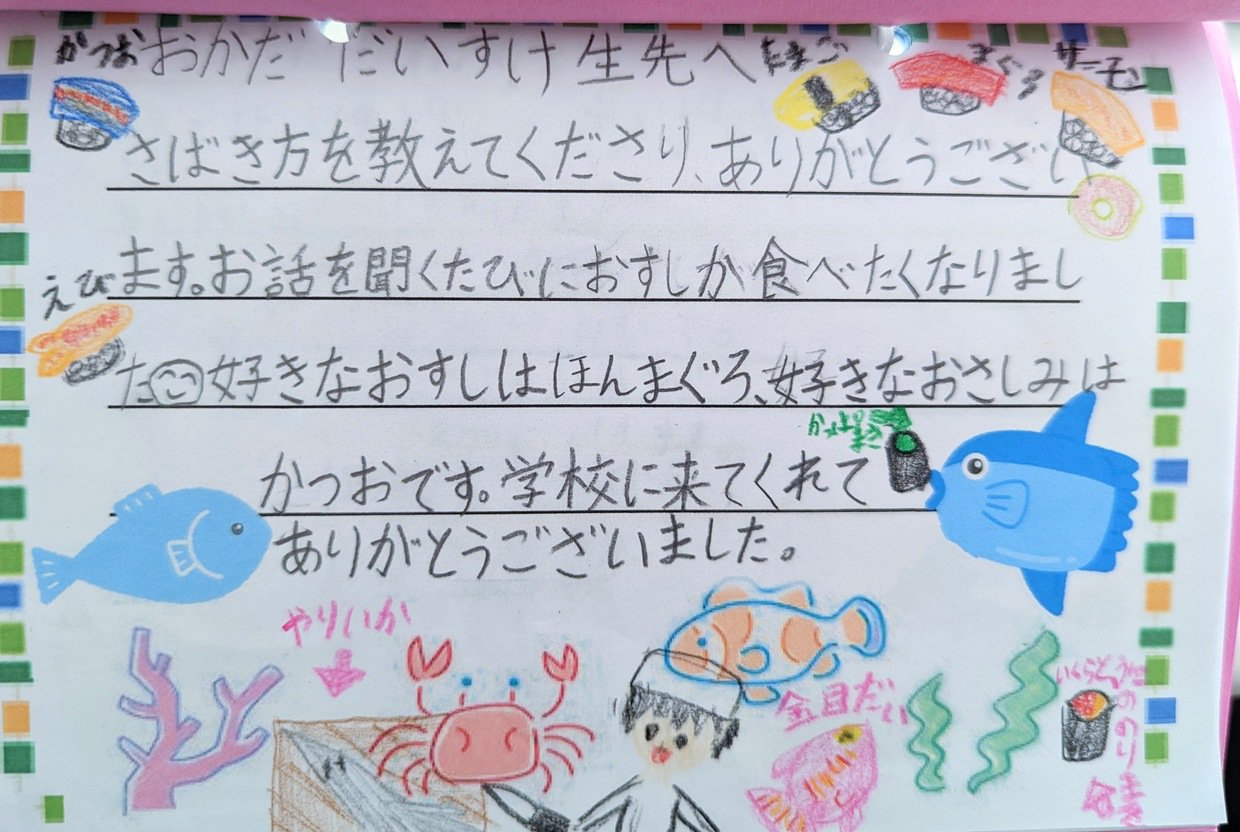 おかだ だいすけ 生先へ
さばき方を教えてくださり、ありがとうござい
ます。お話を聞くたびにおすしか食べたくなりまし
た 好きなおすしはほんまぐろ、好きなおさしみは
かつおです。学校に来てくれて
ありがとうございました。
かつお
たまご
まぐろ
サーモン
えび
かっぱまき
やりいか
金目だい
いくらとうにの
のりまき